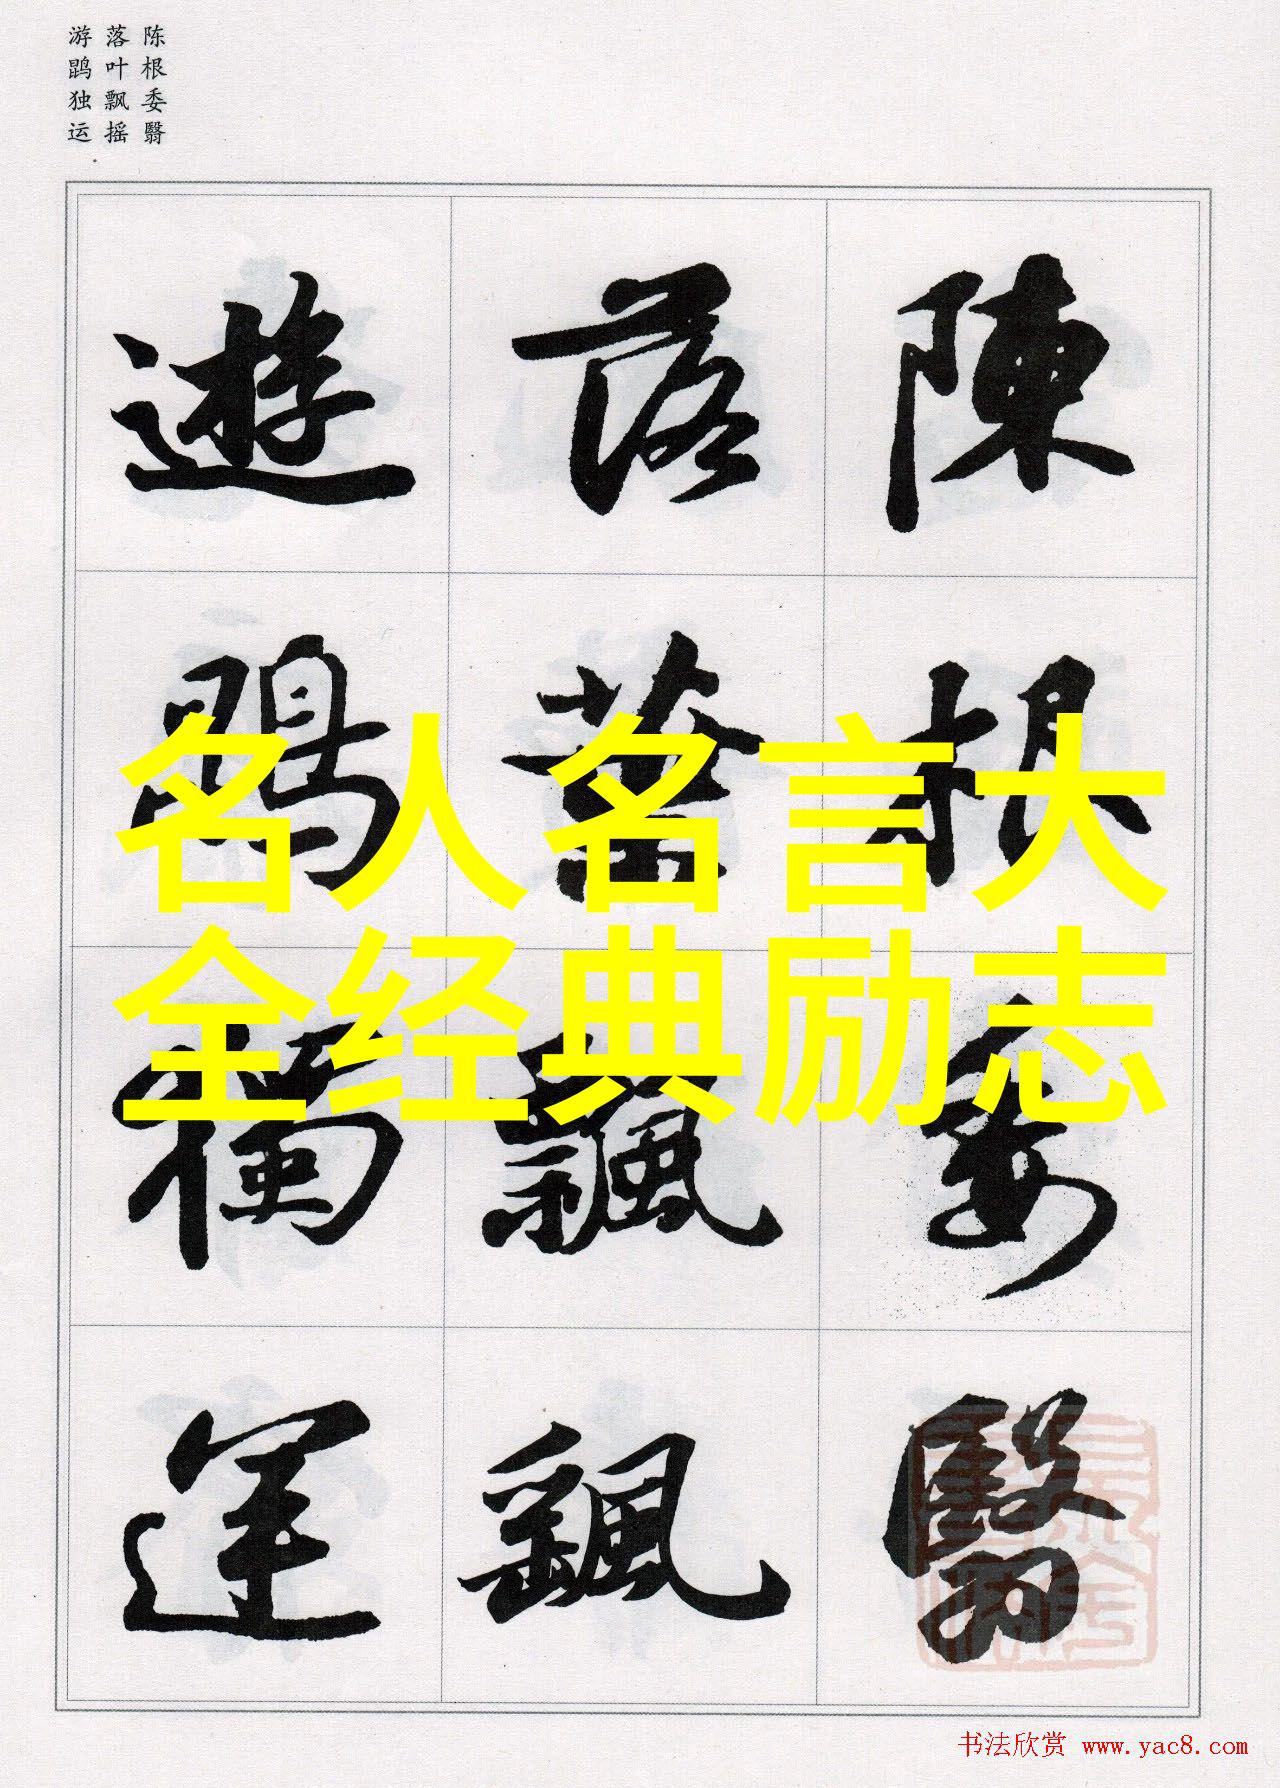 陈根委翳
落叶飘摇
游鹍独运
陳根委翳
落葉飄颻
遊鵾獨運
名人名言大
全经典励志
书法欣赏 www.yac8.com